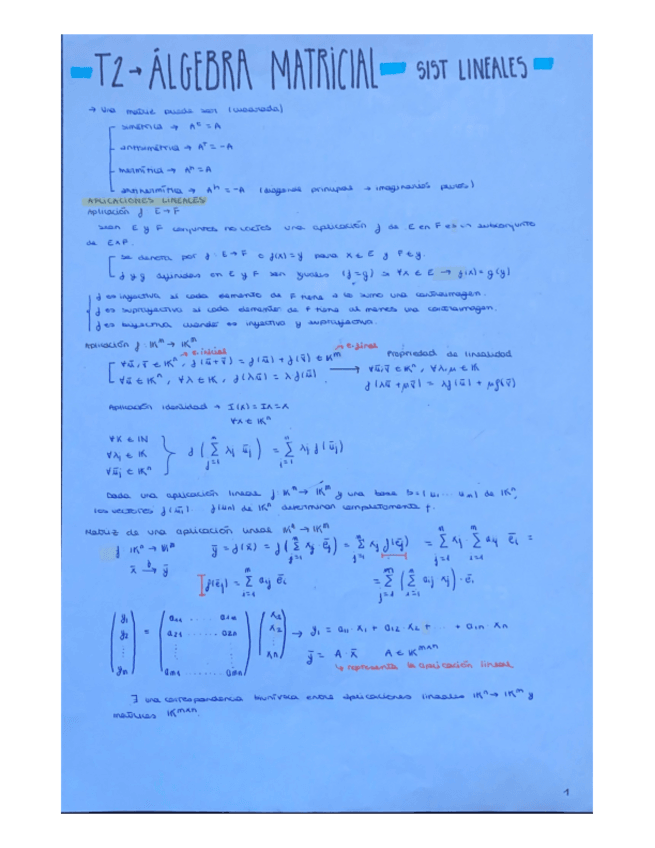 T2 → ÁLGEBRA MATRICIAL — SIST LINEALES
→ Una matriz puede ser (cuadrada)
simétrica → Aᵗ = A
antisimétrica → Aᵀ = -A
hermítica → Aᴴ = A
antihermítica → Aᴴ = -A (diagonal principal → imaginarios puros)
APLICACIONES LINEALES
Aplicación f E→F
Sean E y F conjuntos no vacíos una aplicación f de E en F es un subconjunto
de E×F.
Se denota por f: E→F o f(x)=y para x∈E y y∈F.
f y g definidas en E y F son iguales (f=g) si ∀x∈E → f(x)=g(y)
f es inyectiva si cada elemento de F tiene a lo sumo una contraimagen.
f es suprayectiva si cada elemento de F tiene al menos una contraimagen.
f es biyectiva cuando es inyectiva y suprayectiva.
Aplicación f: 𝕂ⁿ → 𝕂ᵐ
→ e. inicial → e. final
∀ū,v̄ ∈ 𝕂ⁿ, f(ū+v̄) = f(ū) + f(v̄) ∈ 𝕂ᵐ Propiedad de linealidad
∀ū ∈ 𝕂ⁿ, ∀λ∈𝕂, f(λū) = λf(ū) → ∀ū,v̄ ∈ 𝕂ⁿ, ∀λ,μ∈𝕂
f(λū+μv̄) = λf(ū) + μf(v̄)
Aplicación identidad → I(x) = Ix = x
∀x ∈ 𝕂ⁿ
∀k ∈ ℕ
∀λⱼ ∈ 𝕂 f(Σ λⱼ ūⱼ) = Σ λⱼ f(ūⱼ)
∀ūⱼ ∈ 𝕂ⁿ
Dada una aplicación lineal f: 𝕂ⁿ → 𝕂ᵐ y una base B={u₁ ... uₙ} de 𝕂ⁿ,
los vectores f(u₁) f(un) de 𝕂ⁿ determinan completamente f.
Matriz de una aplicación lineal 𝕂ⁿ → 𝕂ᵐ
f 𝕂ⁿ → 𝕂ᵐ ȳ = f(x̄) = f(Σ xⱼ ēⱼ) = Σ xⱼ f(ēⱼ) = Σ xⱼ · Σ aᵢⱼ ēᵢ =
x̄ →f ȳ f(ēⱼ) = Σ aᵢⱼ ēᵢ = Σ (Σ aᵢⱼ xⱼ) · ēᵢ
(y₁ y₂ ⋮ ym) = (a₁₁ ..... a₁n a₂₁ ..... a₂n ⋮ am₁ ..... amn) (x₁ x₂ ⋮ xn) → y₁ = a₁₁·x₁ + a₁₂·x₂ + ... + a₁n·xn
ȳ = A · x̄ A ∈ 𝕂ᵐˣⁿ
↳ representa la aplicación lineal
∃ una correspondencia biunívoca entre aplicaciones lineales 𝕂ⁿ → 𝕂ᵐ y
matrices 𝕂ᵐˣⁿ
1